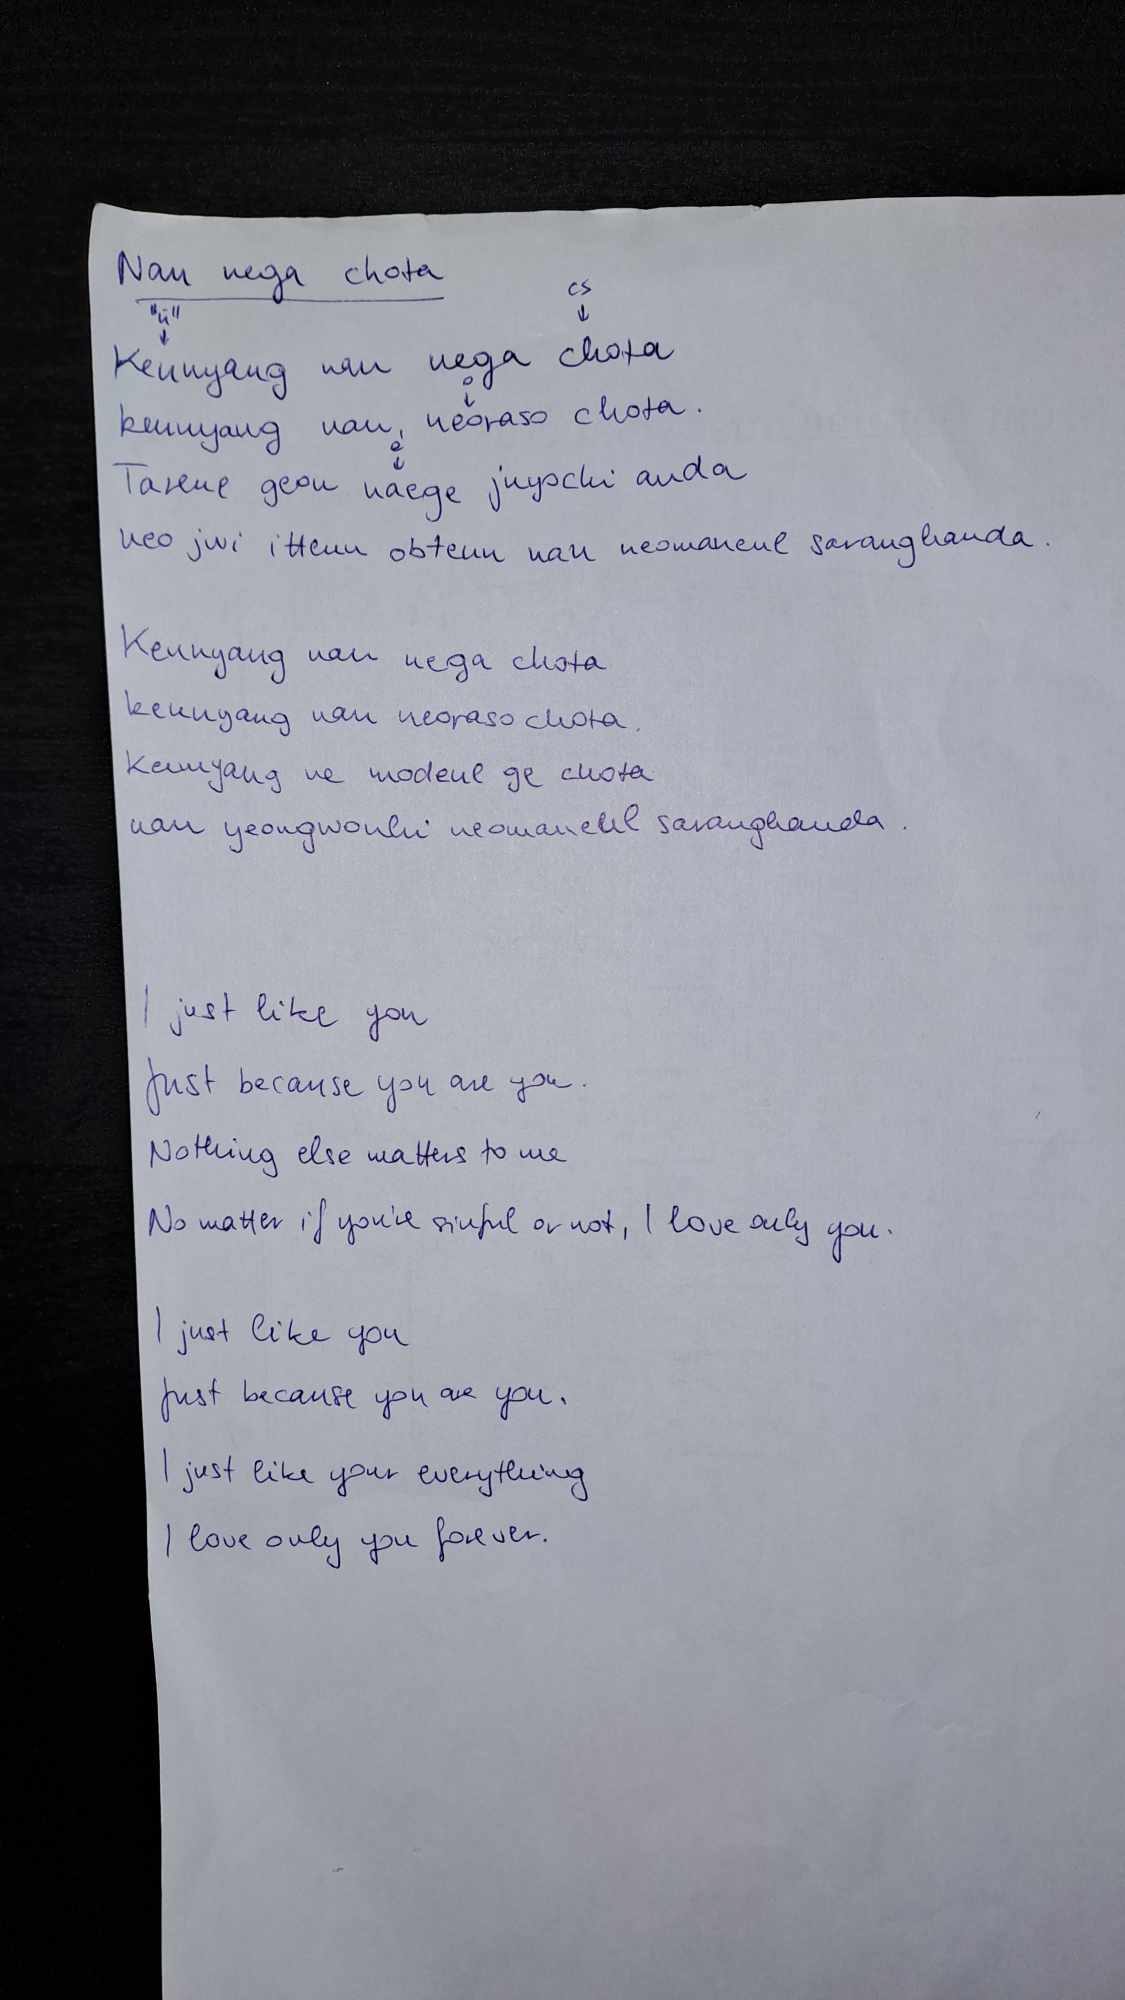 Nan nega chota
cs
"ü"
Keunnyang nan nega chota
o
keunnyang nan, neoraso chota.
e
Tareul geon naege jungochi anda
neo jwi itteun obteun nan neomaneul saranghanda.
Keunnyang nan nega chota
keunnyang nan neoraso chota.
Keunnyang ne modeul ge chota
nan yeongwonhi neomaneul saranghanda.
I just like you
Just because you are you.
Nothing else matters to me
No matter if you're sinful or not, I love only you.
I just like you
Just because you are you.
I just like your everything
I love only you forever.